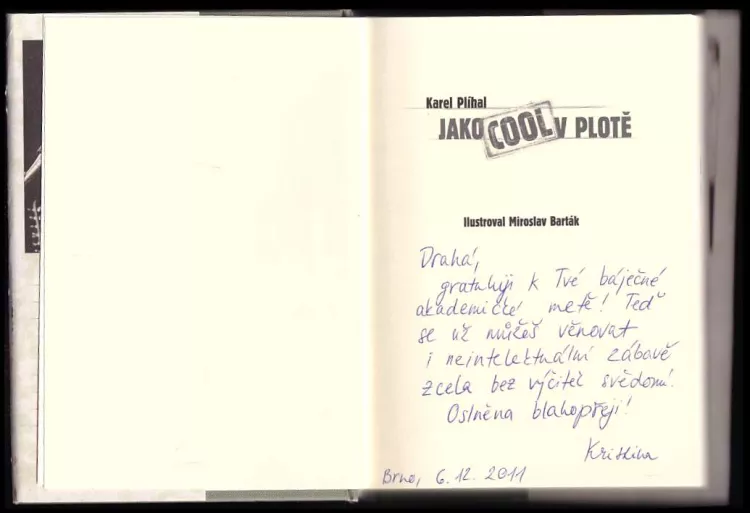 Karel Plíhal
JAKO COOL V PLOTĚ
Ilustroval Miroslav Barták
Drahá,
gratuluji k Tvé báječné
akademické metě! Teď
se už můžeš věnovat
i neintelektuální zábavě
zcela bez výčitek svědomí.
Oslněna blahopřeji!
Kristina
Brno, 6. 12. 2011